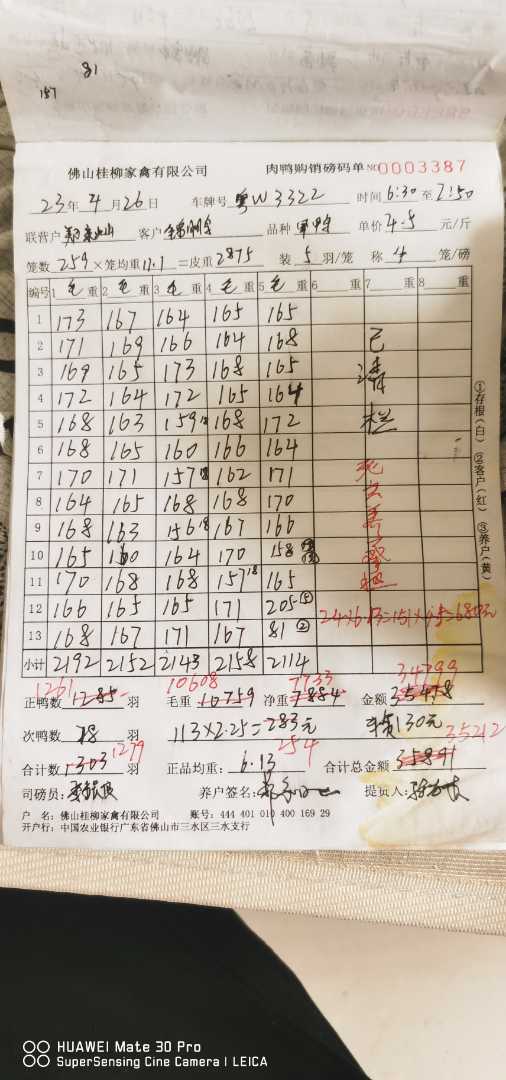 81
157
佛山桂柳家禽有限公司 肉鸭购销磅码单 NO 0003387
23年4月26日 车牌号 粤W3322 时间 6:30 至 7:50
联营户 客户 品种 单价 4.5 元/斤
笼数 259 ×笼均重 11.1 =皮重 2875 装 5 羽/笼 称 4 笼/磅
编号 1 毛 重 2 毛 重 3 毛 重 4 毛 重 5 毛 重 6 重 7 重 8 重
1 173 167 164 165 165
2 171 169 166 164 168 已
3 169 165 173 168 165 清
4 172 164 172 165 164
5 168 163 159 18 168 172 栏
6 168 165 160 166 164
7 170 171 157 18 162 171
8 164 165 168 168 170
9 168 163 156 18 167 166
10 165 160 164 170 158
11 170 168 168 157 18 165
12 166 165 165 171 205 ⑤ 24×6.13=151×4.5=680元
13 168 167 171 167 81 ②
小计 2192 2152 2143 2158 2114
①存根(白) ②客户(红) ③养户(黄)
1261 10608 7733 34799
正鸭数 1285 羽 毛重 10759 净重 7884 金额 35478
次鸭数 18 羽 113×2.25=283元 130元
1279 254 35212
合计数 1303 羽 正品均重: 6.13 合计总金额 35891
司磅员: 养户签名: 提货人:
户 名: 佛山桂柳家禽有限公司 账号: 444 401 010 400 169 29
开户行: 中国农业银行广东省佛山市三水区三水支行
HUAWEI Mate 30 Pro
SuperSensing Cine Camera | LEICA